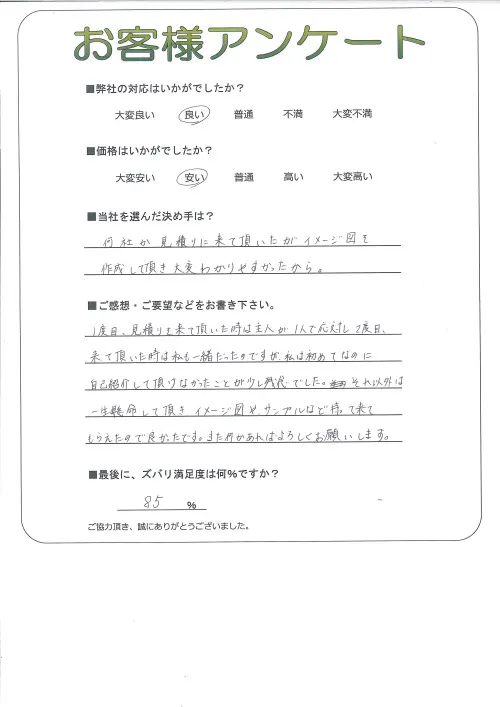 お客様アンケート
■弊社の対応はいかがでしたか？
大変良い 良い 普通 不満 大変不満
■価格はいかがでしたか？
大変安い 安い 普通 高い 大変高い
■当社を選んだ決め手は？
何社か見積りに来て頂いたがイメージ図を
作成して頂き大変わかりやすかったから。
■ご感想・ご要望などをお書き下さい。
1度目、見積りを来て頂いた時は主人が1人で応対し2度目、
来て頂いた時は私も一緒だったのですが私は初めてなのに
自己紹介して頂けなかったことが少し残念でした。それ以外は
一生懸命して頂きイメージ図や、サンプルなど持って来て
もらえたので良かったです。また何かあればよろしくお願いします。
■最後に、ズバリ満足度は何％ですか？
85 ％
ご協力頂き、誠にありがとうございました。